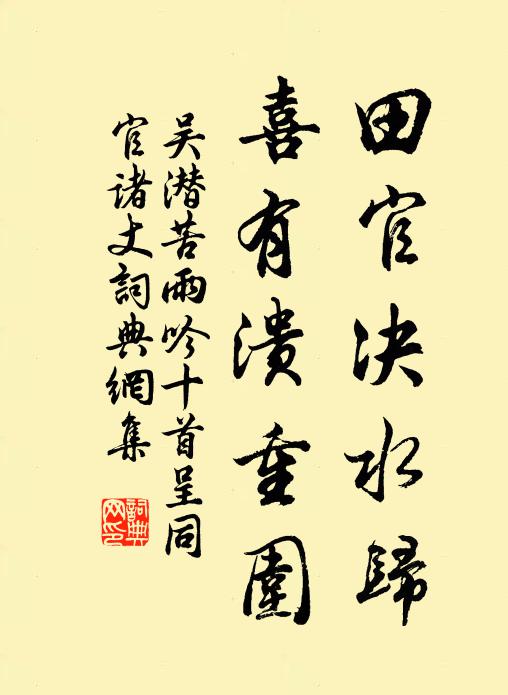 田官决水歸
喜有潰重圍
吴潛苦雨吟十首呈同
官諸丈詞典網集
詞典网印